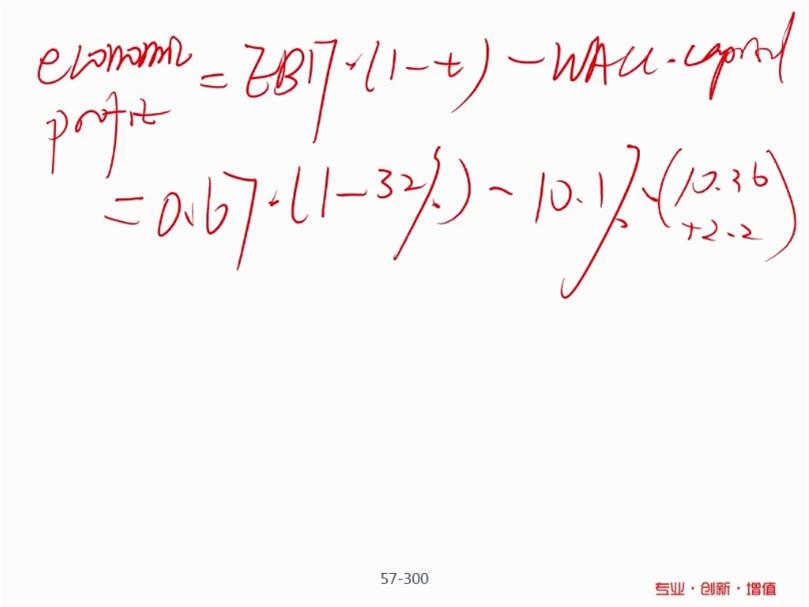 economic profit = EBIT·(1-t) - WACC·capital
= 0.67·(1-32%) - 10.1%·(10.36 +2.2)
57-300
专业·创新·增值